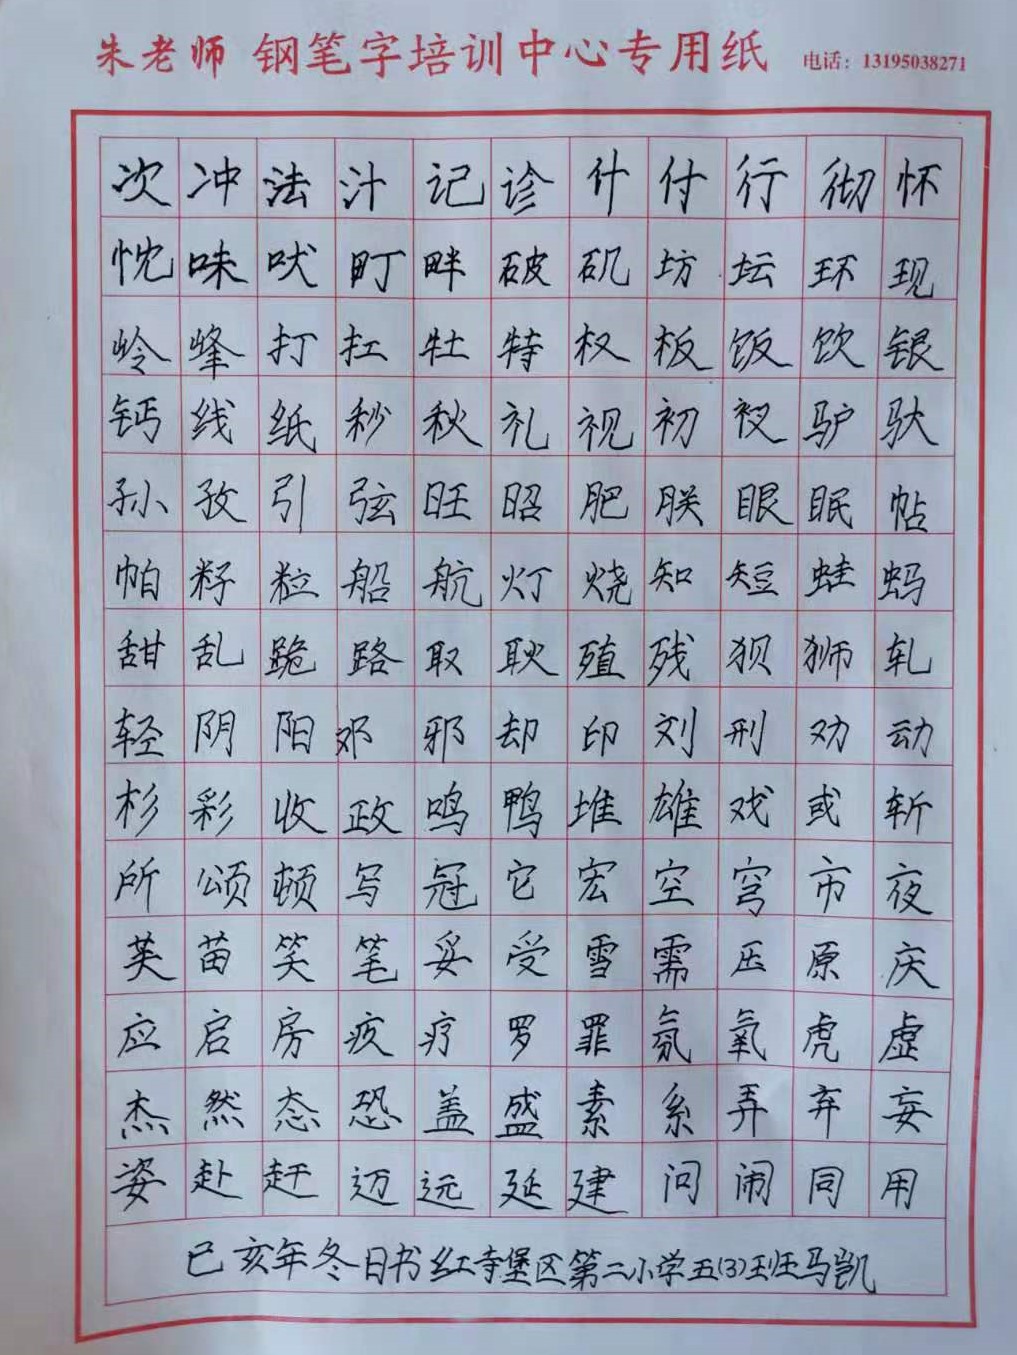 朱老师 钢笔字培训中心专用纸 电话：13195038271
次冲法汁记诊什付行彻怀
忱味吠町畔破矶坊坛环现
岭峰打扛牡特权板饭饮银
钙线纸秒秋礼视初衩驴驮
孙孜引弦旺昭肥朕眼眠帖
帕籽粒船航灯烧知短蛙蚂
甜乱跪路取耿殖残狈狮轧
轻阴阳邓邪却印刘刑劝动
杉彩收政鸣鸭堆雄戏或斩
所颂顿写冠它宏空穹市夜
英苗笑笔妥受雪需压原庆
应启房疫疗罗罪氛氧虎虚
杰然态恐盖盛素系弄弃妄
姿赴赶迈远延建问闹同用
已亥年冬日书红寺堡区第二小学五(3)班马凯